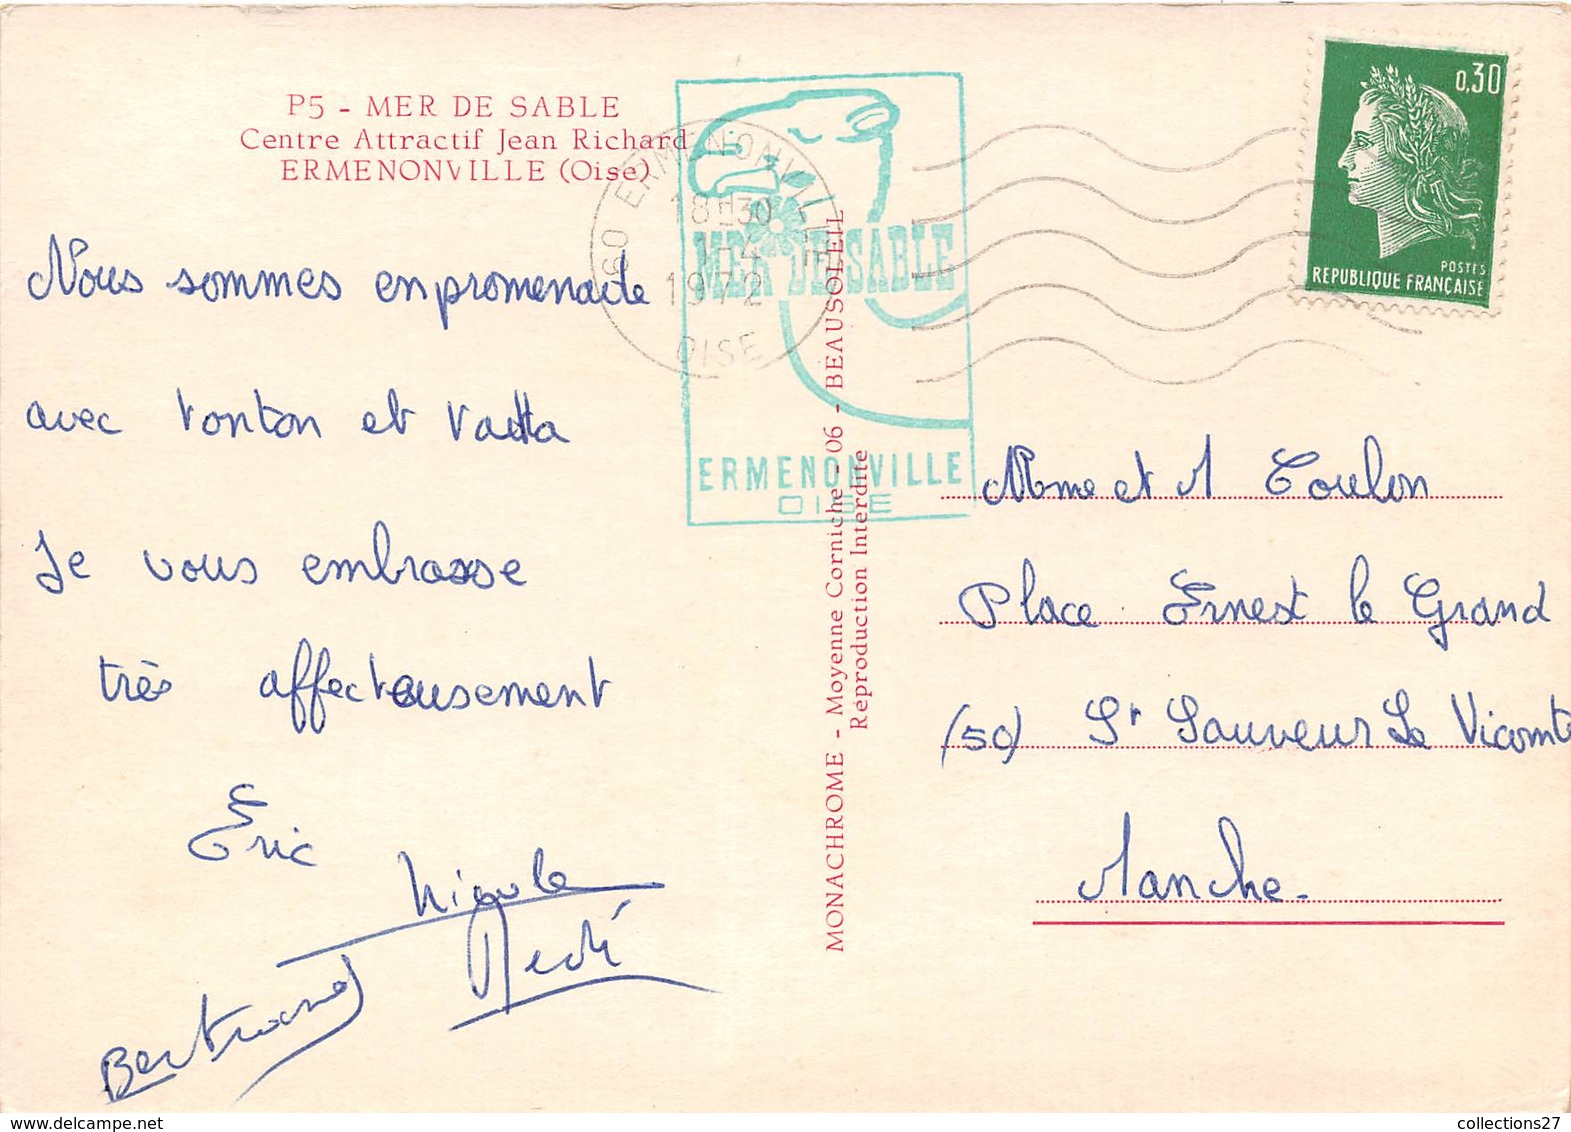 P5 - MER DE SABLE
Centre Attractif Jean Richard
ERMENONVILLE (Oise)
60 ERMENONVILLE
18H30
1-4
1972
OISE
MER DE SABLE
ERMENONVILLE
OISE
0,30
POSTES
REPUBLIQUE FRANÇAISE
Nous sommes en promenade
avec tonton et tatta
Je vous embrasse
très affecteusement
Eric
Nicole
Bertrand
MONACHROME - Moyenne Corniche - 06 - BEAUSOLEIL
Réproduction Interdite
Mme et M Toulon
Place Ernest le Grand
(50) St Sauveur Le Vicomte
Manche.
collections27